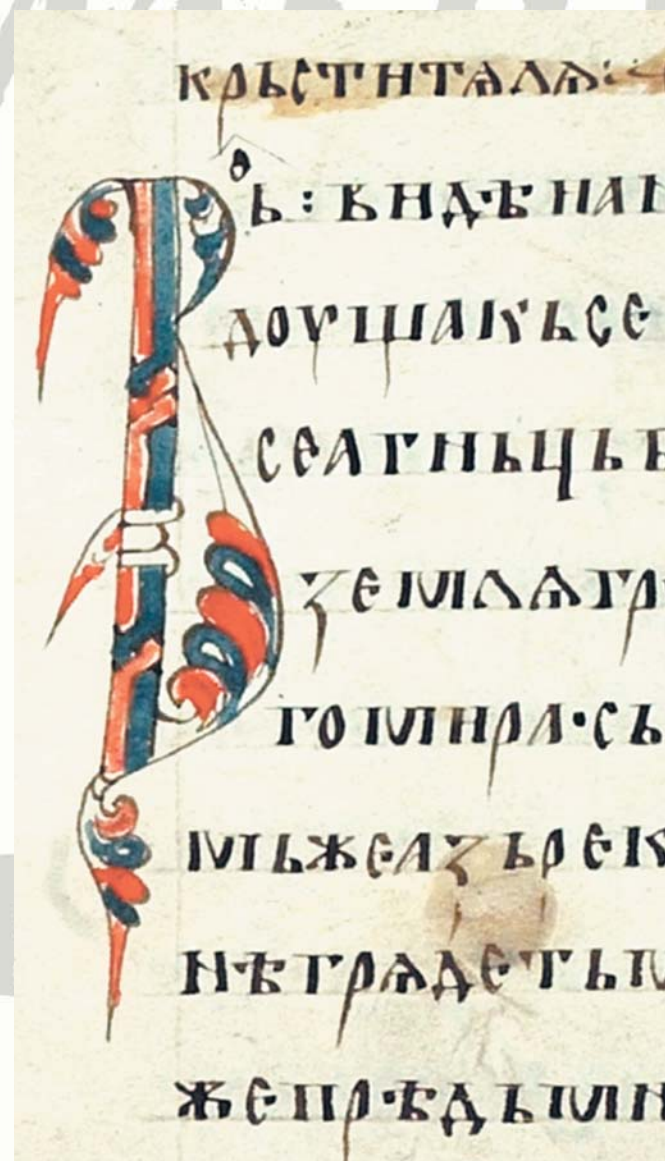 крьститѧлѧ:
Воь : видѣ наı
доущакьсе
сеагньцьб
ꙁемлѧгр
гомира·сь
мьжеаꙁьрек
нѣгрѧдетьм
жепрѣдьмн